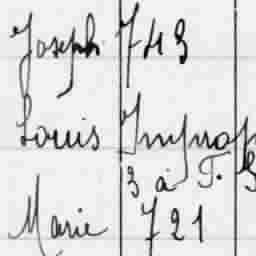 Joseph 743
Louis
3 à T.
Marie 721